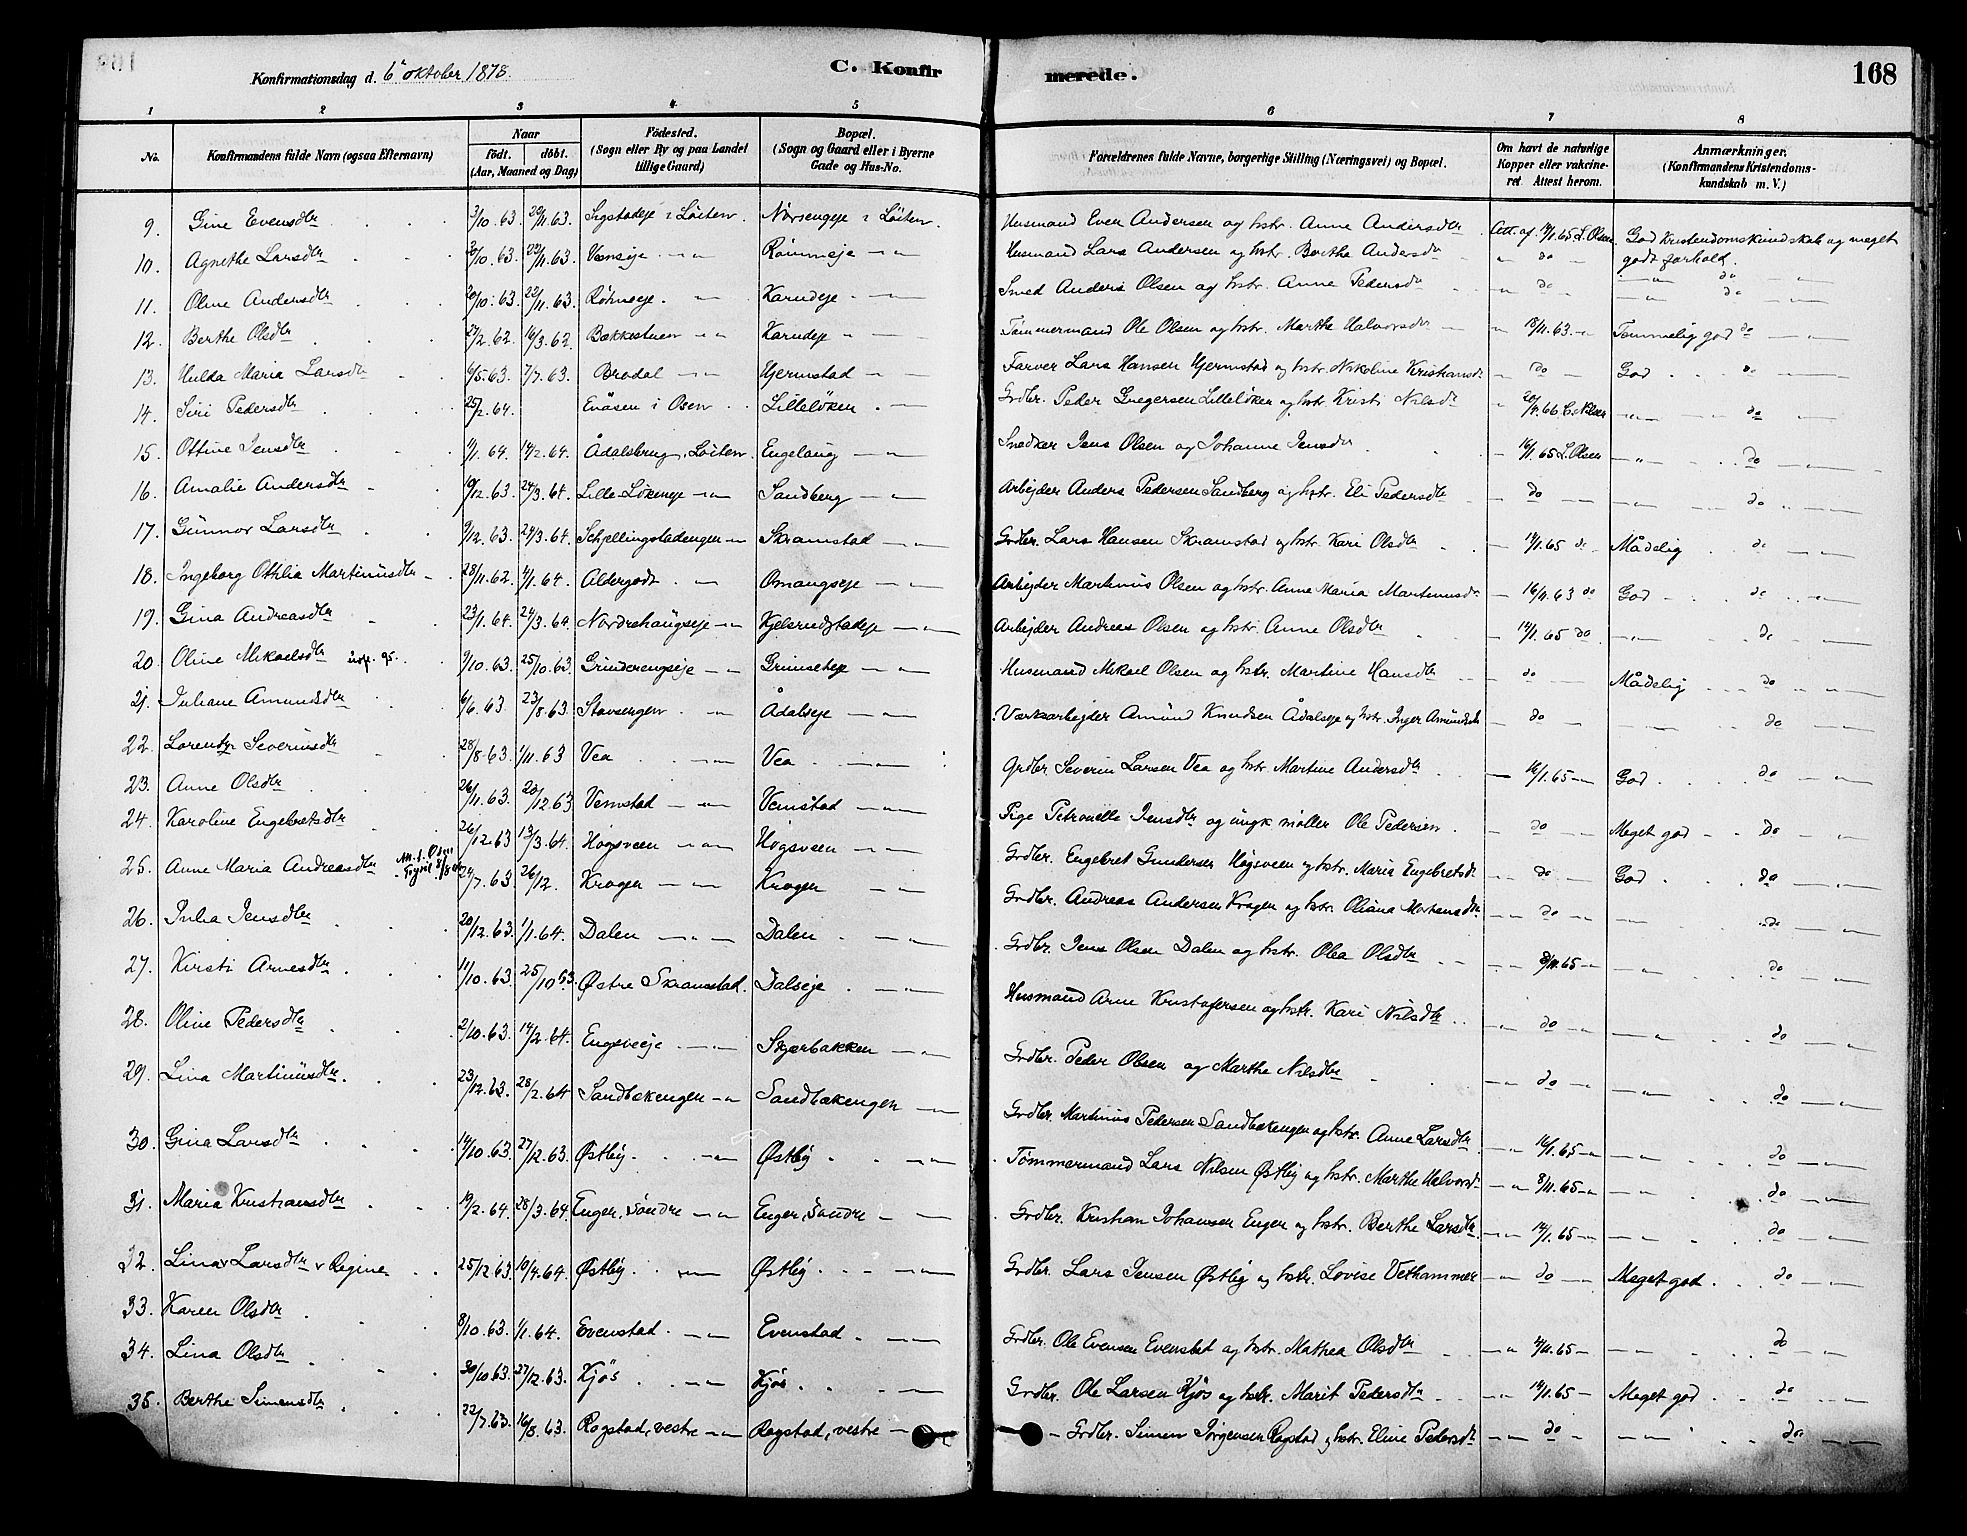 Konfirmationsdag d. 6te oktober 1878.
C. Konfirmerede.
168
1 2 3 4 5 6 7 8
No.
Konfirmandens fulde Navn (ogsaa Efternavn)
Naar
født. døbt.
(Aar, Maaned og Dag)
Födested.
(Sogn eller By og paa Landet tillige Gaard)
Bopæl.
(Sogn og Gaard eller i Byerne Gade og Hus-No.
Forældrenes fulde Navne, borgerlige Stilling (Næringsvei) og Bopæl.
Om havt de naturlige Kopper eller vakcineret. Attest herom.
Anmærkninger.
(Konfirmandens Kristendomskundskab m. V.)
9. Gine Evensdtr 3/10.63 29/11.63. i Löiten Husmand Even Andersen og hstr. Anne Andersdtr Att. af 14/1.65 L. Olsen God Kristendomskundskab og meget godt forhold.
10. Agnethe Larsdtr 20/10.63 22/11.63. Husmand Lars Andersen og hstr. Berthe Andersdtr " do do
11. Oline Andersdtr 20/10.63 22/11.63. Karudeje Smed Anders Olsen og hstr. Anne Pedersdtr " do do
12. Berthe Olsdtr 27/2.62. 16/3.62. Bækkestuen Karudeje Tømmermand Ole Olsen og hstr. Marthe Halvorsdtr 18/11.63 Temmelig god do
13. Hulda Maria Larsdtr 6/5.63. 7/7.63. Brodal Hjermstad Farver Lars Hansen Hjermstad og hstr. Nikoline Kristiansdtr do God do
14. Siri Pedersdtr 25/2.64. Evåsen i Osen Lilleløken Grdbr. Peder Gregersen Lilleløken og hstr. Kristi Nilsdtr L. Nilsen do
15. Ottine Jensdtr 1/1.64. 14/2.64. Ådalsbrug, Löiten Engelaug Snedker Jens Olsen og Johanne Jensdtr 16/1.65 L. Olsen do
16. Amalie Andersdtr 19/12.63. 24/3.64. Lille-Løkeneje Sandberg Arbejder Anders Pedersen Sandberg og hstr. Eli Pedersdtr do do
17. Gunnor Larsdtr 9/12.63. 24/3.64. Schjellingstadengen Skramstad Grdbr. Lars Hansen Skramstad og hstr. Kari Olsdtr 14/1.65 do Mådelig do
18. Ingeborg Othlia Martinusdtr 28/11.62. 4/1.64. Aldergodt Omangseje Arbejder Martinus Olsen og hstr. Anne Maria Martinusdtr 16/11.63 do God do
19. Gina Andreasdtr 23/1.64. 24/3.64. Nordrehaugseje Kjelsrudstadeje Arbejder Andreas Olsen og hstr. Anne Olsdtr 14/1.65 do do
20. Oline Mikaelsdtr 9/10.63. 25/10.63. Grinderengseje Grimseteje Husmand Mikael Olsen og hstr. Martine Hansdtr do Mådelig do
21. Juliane Amundsdtr 6/6.63 23/8.63. Stavsengen Ådalseje Værksarbejder Amund Knudsen Ådalseje og hstr. Inger Amundsdtr do do
22. Lorentze Severinsdtr 28/8.63 1/11.63 Vea Vea Grdbr Severin Larsen Vea og hstr. Martine Andersdtr 16/1.65 God do
23. Anne Olsdtr 26/11.63. 20/12.63 Vemstad Vemstad Pige Petronelle Jensdtr og ungk møller Ole Pedersen do Meget god do
24. Karoline Engebretsdtr 26/12.63 13/3.64. Høgsveen Høgsveen Grdbr. Engebret Gundersen Høgsveen og hstr. Maria Engebretsdtr do God do
25. Anne Maria Andreasdtr 24/7.63 26/12. Krogen Krogen Grdbr. Andreas Andersen Krogen og hstr. Oliana Mortensdtr do do
26. Julia Jensdtr 20/12.63. 1/1.64. Dalen Dalen Grdbr. Jens Olsen Dalen og hstr. Olea Olsdtr 8/11.65 do
27. Kirsti Arnesdtr 11/10.63. 25/10.63. Østre Skramstad. Dalseje Husmand Arne Kristofersen og hstr. Kari Nilsdtr do do
28. Oline Pedersdtr 2/10.63. 14/2.64. Engsveeje Skjærbakken Grdbr. Peder Olsen og Marthe Nilsdtr do do
29. Lina Martinusdtr 23/12.63. 28/2.64 Sandbækengen Sandbækengen Grdbr. Martinus Pedersen Sandbækengen og hstr. Anne Larsdtr 14/1.65 do
30. Gina Larsdtr 14/10.63. 27/12.63. Østby Østby Tømmermand Lars Nilsen Østby og hstr. Marthe Halvorsdtr 8/11.65 do
31. Maria Kristiansdtr 19/2.64. 28/3.64. Enger, Søndre Enger, Søndre Grdbr. Kristian Johansen Enger og hstr. Berthe Larsdtr 14/1.65 do
32. Lina Larsdtr Regine 25/12.63 10/4.64. Østby Østby Grdbr. Lars Jensen Østby og hstr. Lovise Vethammer do Meget god do
33. Karen Olsdtr 8/10.63. 1/1.64. Evenstad Evenstad Grdbr. Ole Evensen Evenstad og hstr. Mathea Olsdtr 4/11.65 do
34. Lina Olsdtr 30/10.63. 27/12.63. Kjøs Kjøs Grdbr. Ole Larsen Kjøs og hstr. Marit Pedersdtr 14/1.65 Meget god do
35. Berthe Simensdtr 22/7.63. 16/8.63 Rogstad, vestre Rogstad, vestre Grdbr. Simen Jörgensen Rogstad og hstr. Eline Pedersdtr do do